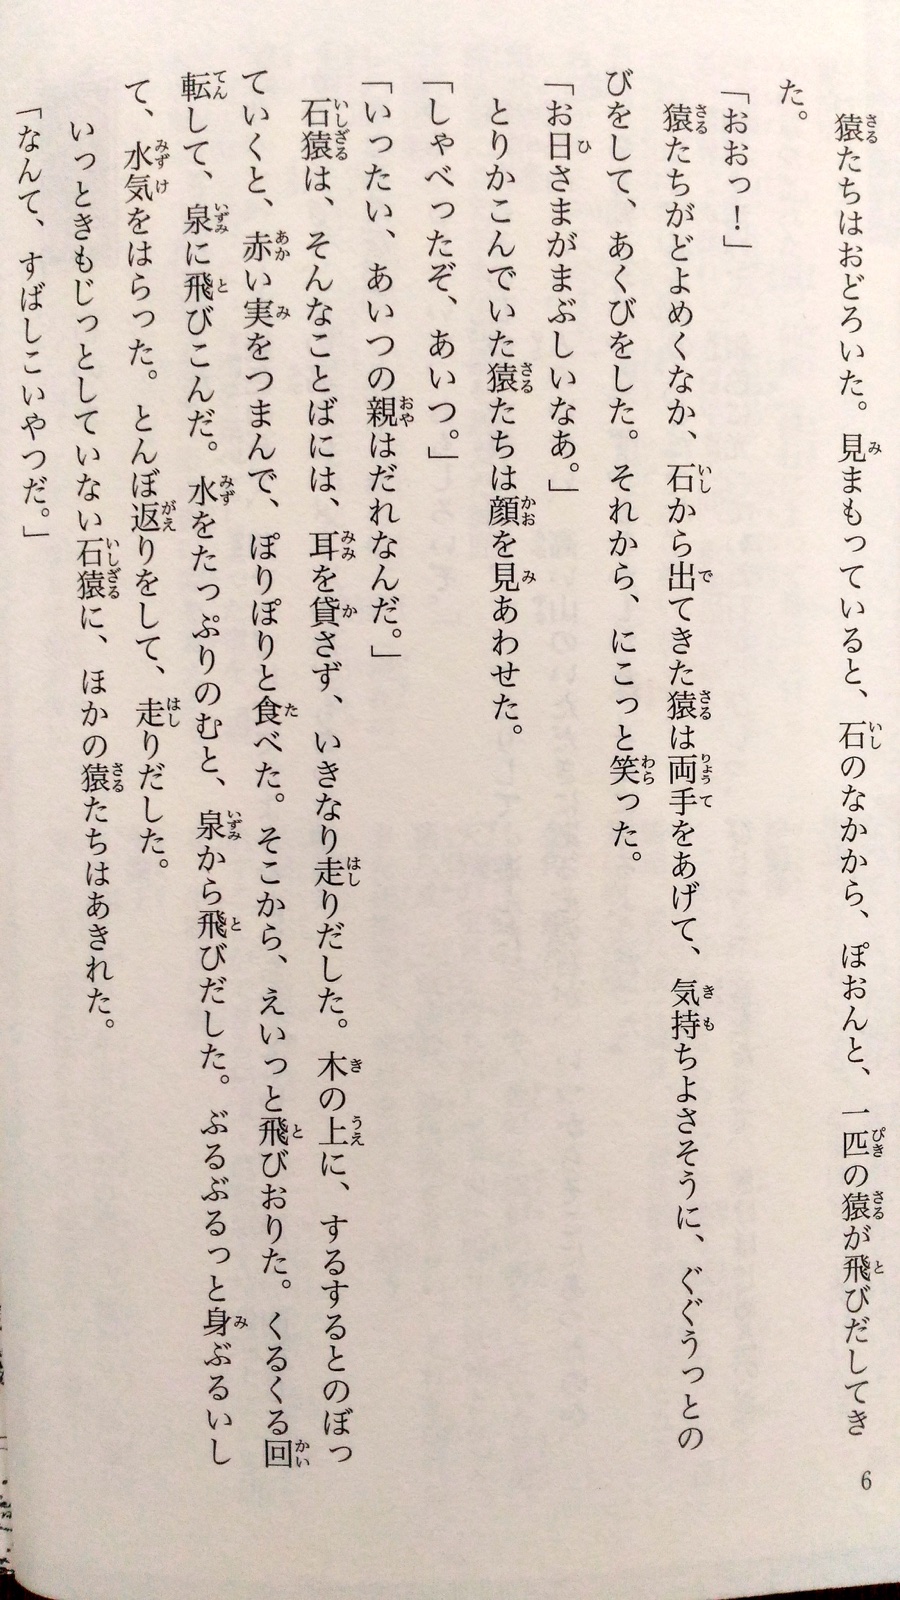 猿たちはおどろいた。見まもっていると、石のなかから、ぽおんと、一匹の猿が飛びだしてき
た。
「おおっ！」
猿たちがどよめくなか、石から出てきた猿は両手をあげて、気持ちよさそうに、ぐぐうっとの
びをして、あくびをした。それから、にこっと笑った。
「お日さまがまぶしいなあ。」
とりかこんでいた猿たちは顔を見あわせた。
「しゃべったぞ、あいつ。」
「いったい、あいつの親はだれなんだ。」
石猿は、そんなことばには、耳を貸さず、いきなり走りだした。木の上に、するするとのぼっ
ていくと、赤い実をつまんで、ぽりぽりと食べた。そこから、えいっと飛びおりた。くるくる回
転して、泉に飛びこんだ。水をたっぷりのむと、泉から飛びだした。ぶるぶるっと身ぶるいし
て、水気をはらった。とんぼ返りをして、走りだした。
いっときもじっとしていない石猿に、ほかの猿たちはあきれた。
「なんて、すばしこいやつだ。」
6